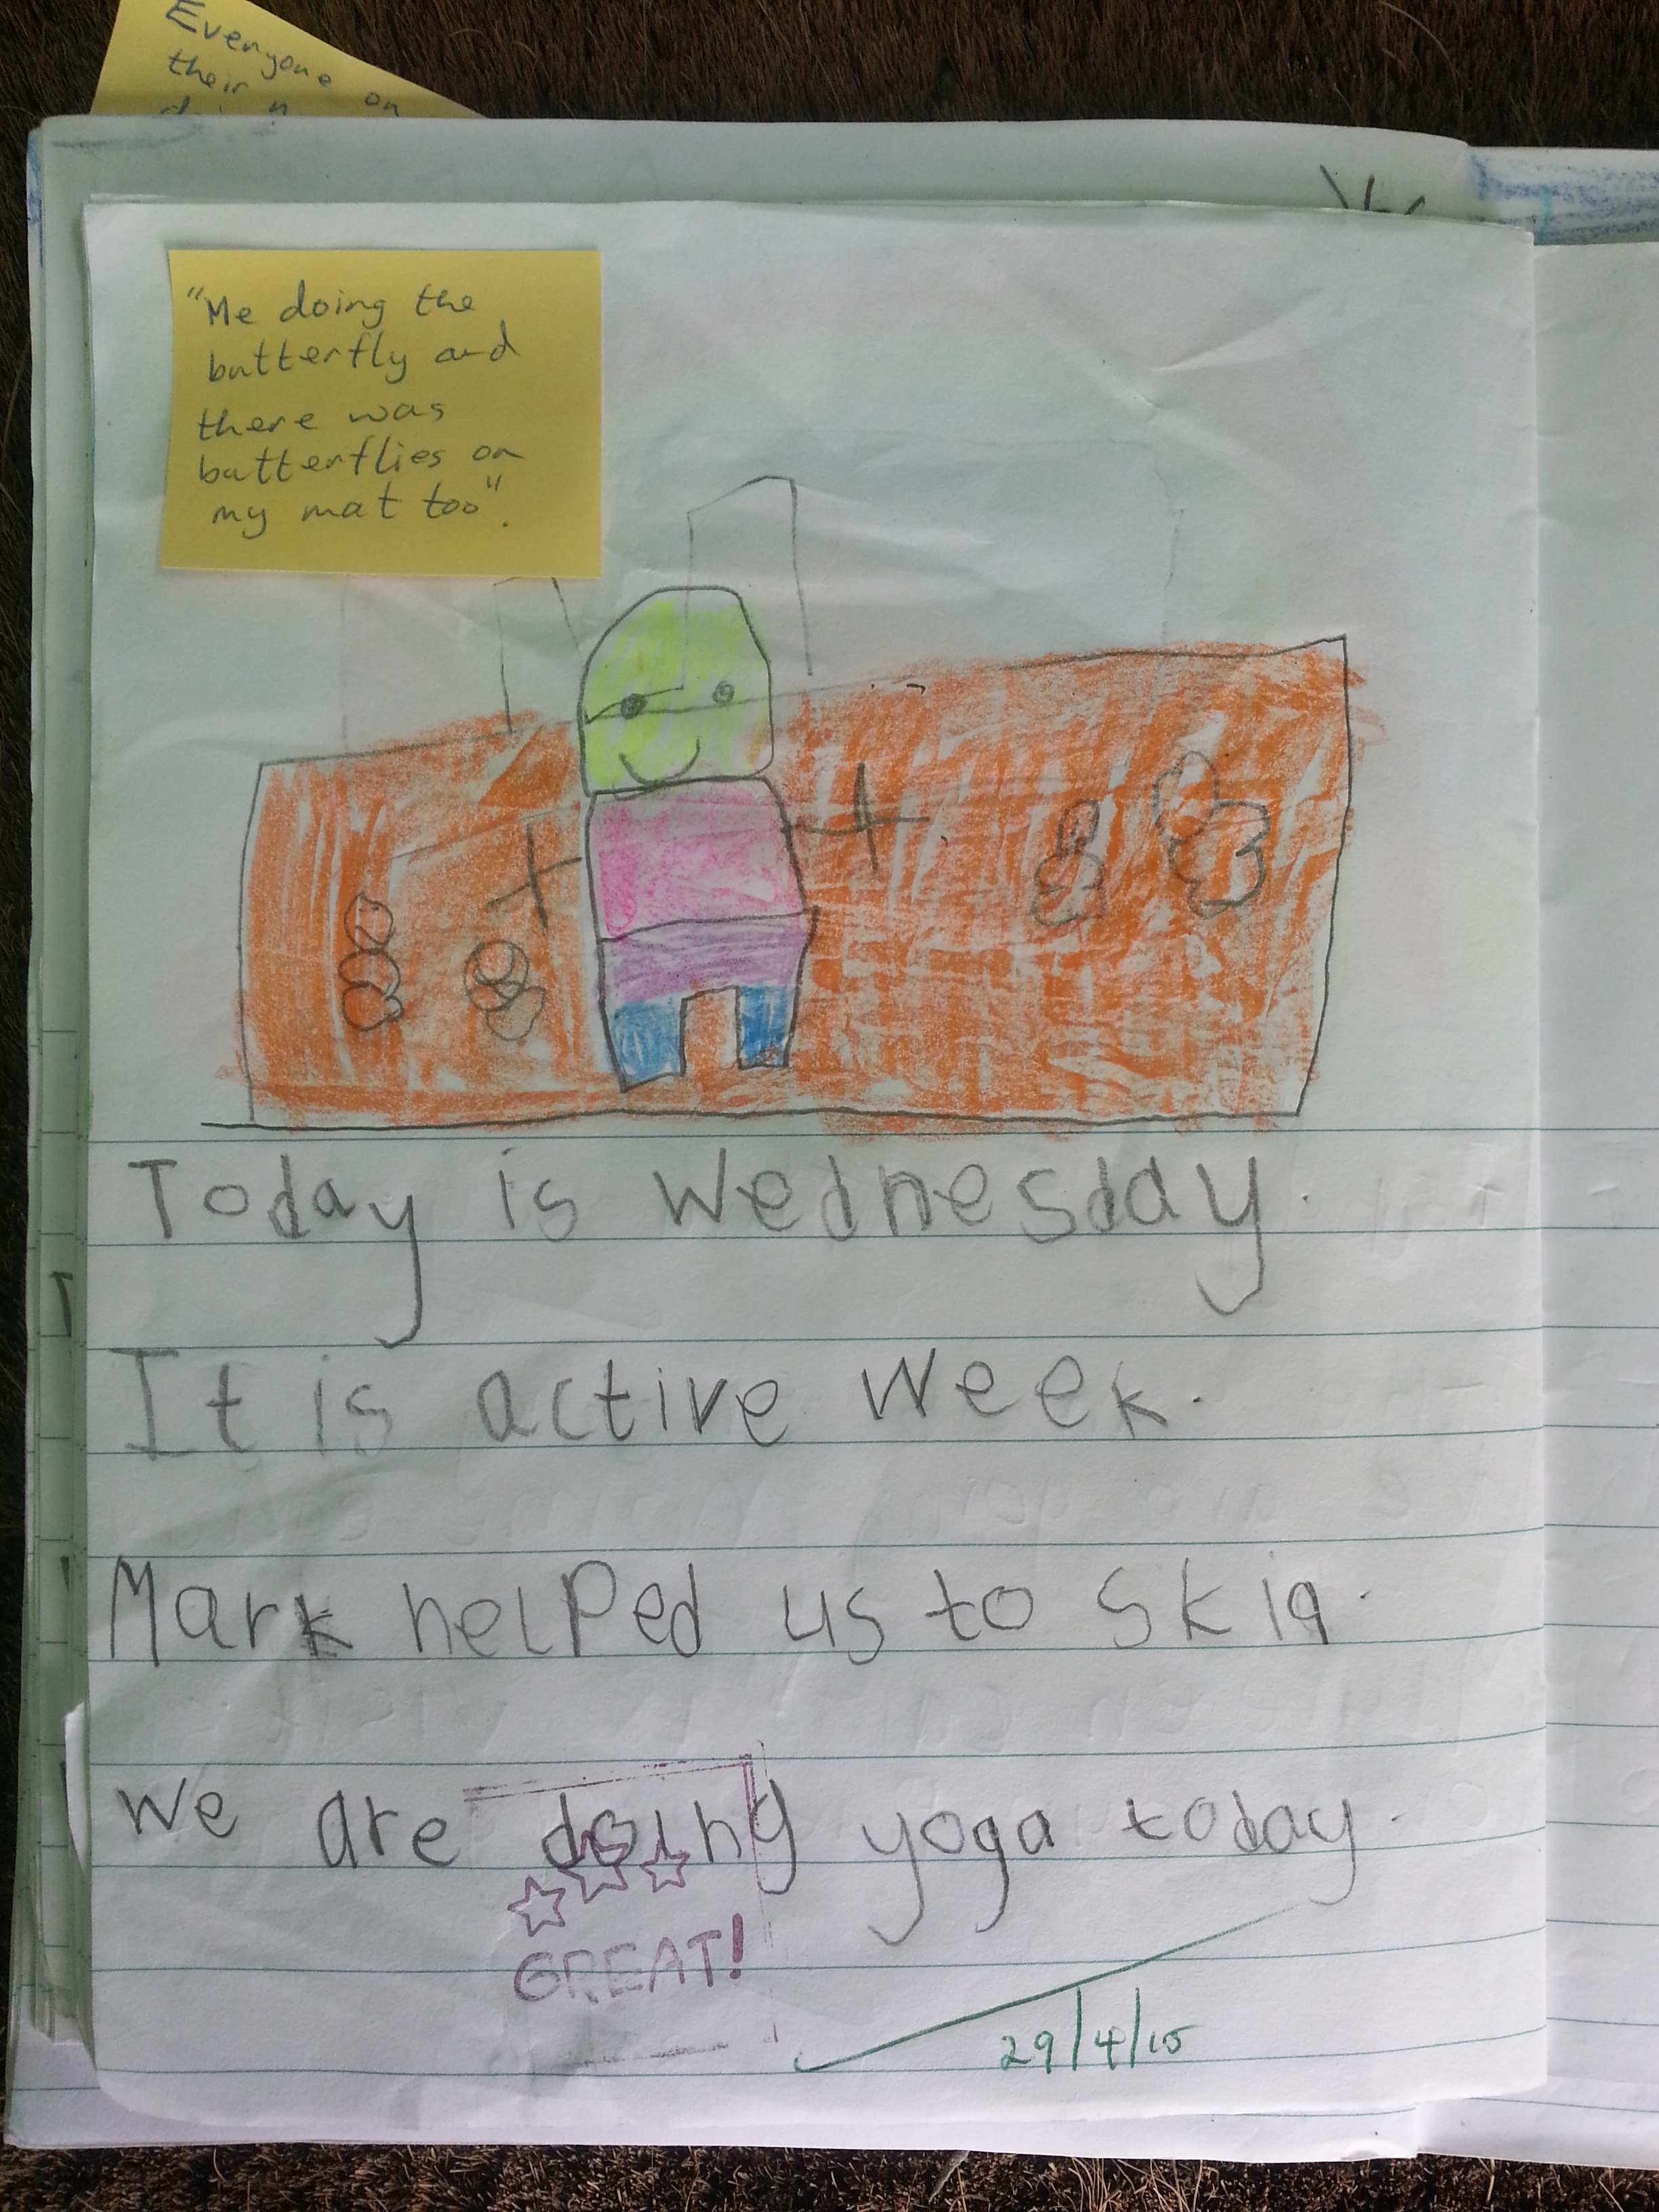 Everyone on
their
"Me doing the
butterfly and
there was
butterflies on
my mat too".
Today is Wednesday.
It is active week.
Mark helped us to skip.
We are doing yoga today.
GREAT!
29/4/15